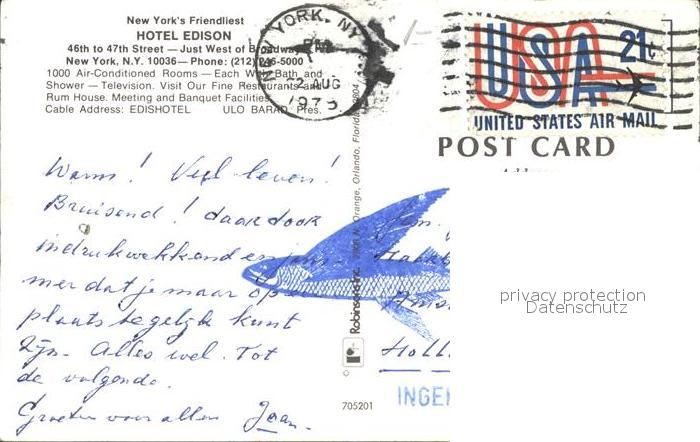 New York's Friendliest
HOTEL EDISON
46th to 47th Street — Just West of Broadway
New York, N.Y. 10036 — Phone: (212) 246-5000
1000 Air-Conditioned Rooms — Each With Bath and
Shower — Television. Visit Our Fine Restaurants and
Rum House. Meeting and Banquet Facilities.
Cable Address: EDISHOTEL ULO BARAD Pres.
NEW YORK, NY
PM
22 AUG
1973
USA 21c
UNITED STATES AIR MAIL
POST CARD
Warm! Veel leven!
Bruisend! daardoor
indrukwekkend en jam
mer dat je maar op een
plaats tegelijk kunt
zijn. Alles wel. Tot
de volgende.
Groeten voor allen Jean.
Robinson's Inc. Orange, Orlando, Florida
705201
Holl
INGE
privacy protection
Datenschutz